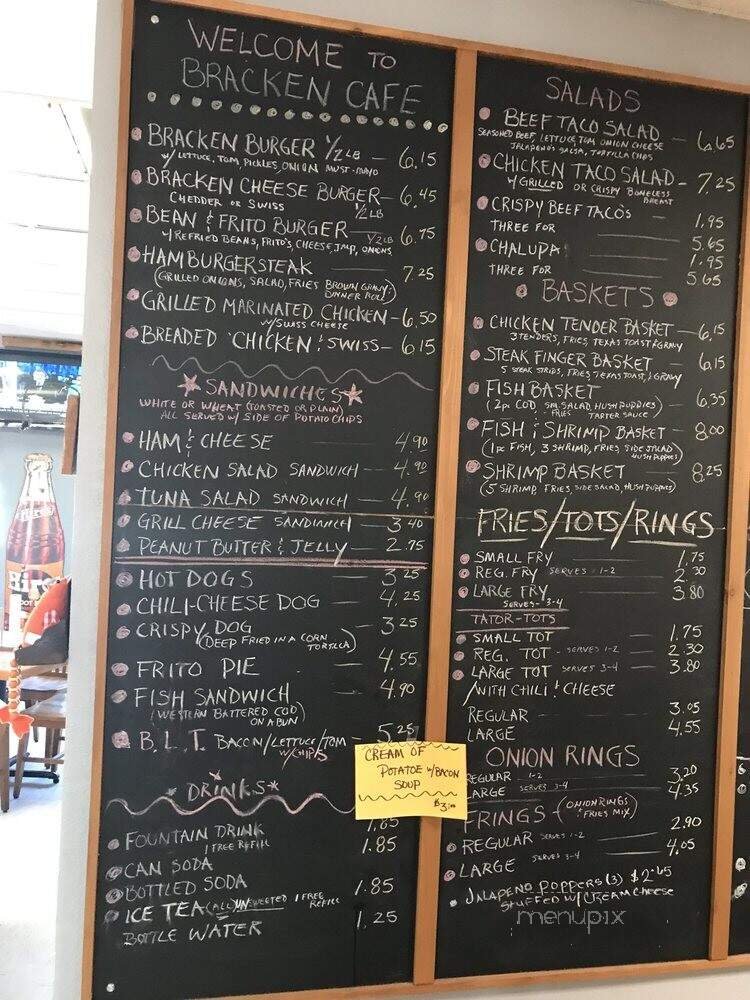 WELCOME TO
BRACKEN CAFE
BRACKEN BURGER 1/2 LB — 6.15
W/ LETTUCE, TOM, PICKLES, ONION MUST-MAYO
BRACKEN CHEESE BURGER — 6.45
CHEDDER OR SWISS 1/2 LB
BEAN & FRITO BURGER 1/2 LB 6.75
W/ REFRIED BEANS, FRITO'S, CHEESE, JAP, ONIONS
HAMBURGERSTEAK — 7.25
(GRILLED ONIONS, SALAD, FRIES BROWN GRAVY
DINNER ROLL)
GRILLED MARINATED CHICKEN — 6.50
W/SWISS CHEESE
BREADED CHICKEN & SWISS — 6.15
SANDWICHES
WHITE OR WHEAT (TOASTED OR PLAIN)
ALL SERVED W/ SIDE OF POTATO CHIPS
HAM & CHEESE — 4.90
CHICKEN SALAD SANDWICH — 4.90
TUNA SALAD SANDWICH — 4.90
GRILL CHEESE SANDWICH — 3.40
PEANUT BUTTER & JELLY — 2.75
HOT DOGS — 3.25
CHILI-CHEESE DOG — 4.25
CRISPY DOG — 3.25
(DEEP FRIED IN A CORN
TORTILLA)
FRITO PIE — 4.55
FISH SANDWICH — 4.90
(WESTERN BATTERED COD
ON A BUN
B.L.T. BACON/LETTUCE/TOM — 5.25
W/CHIPS
CREAM OF
POTATOE W/BACON
SOUP
$3.00
DRINKS
1.85
FOUNTAIN DRINK 1.85
1 FREE REFILL
CAN SODA
BOTTLED SODA 1.85
ICE TEA (ALL) UNSWEETED 1 FREE REFILL
BOTTLE WATER 1.25
SALADS
BEEF TACO SALAD — 6.65
SEASONED BEEF, LETTUCE, TOM ONION CHEESE
JALAPENO'S SALSA, TORTILLA CHIPS
CHICKEN TACO SALAD — 7.25
W/ GRILLED OR CRISPY BONELESS
BREAST
CRISPY BEEF TACO'S — 1.95
THREE FOR 5.65
CHALUPA 1.95
THREE FOR 5.65
BASKETS
CHICKEN TENDER BASKET — 6.15
3 TENDERS, FRIES, TEXAS TOAST & GRAVY
STEAK FINGER BASKET — 6.15
5 STEAK STRIPS, FRIES, TEXAS TOAST, & GRAVY
FISH BASKET — 6.35
(2pc COD, SM. SALAD, HUSH PUPPIES)
FRIES TARTER SAUCE
FISH & SHRIMP BASKET — 8.00
(1pc FISH, 3 SHRIMP, FRIES, SIDE SALAD
HUSH PUPPIES)
SHRIMP BASKET — 8.25
(5 SHRIMP, FRIES, SIDE SALAD, HUSH PUPPIES)
FRIES/TOTS/RINGS
SMALL FRY — 1.75
REG. FRY SERVES 1-2 — 2.30
LARGE FRY — 3.80
SERVES- 3-4
TATOR-TOTS
SMALL TOT — 1.75
REG. TOT - SERVES 1-2 — 2.30
LARGE TOT SERVES 3-4 — 3.80
/WITH CHILI & CHEESE
REGULAR — 3.05
LARGE — 4.55
ONION RINGS
REGULAR 1-2 — 3.20
LARGE SERVES 3-4 — 4.35
FRINGS - (ONION RINGS
& FRIES MIX)
REGULAR SERVES 1-2 — 2.90
LARGE SERVES 3-4 — 4.05
JALAPENO POPPERS (3) $2.45
STUFFED W/ CREAM CHEESE
menupix